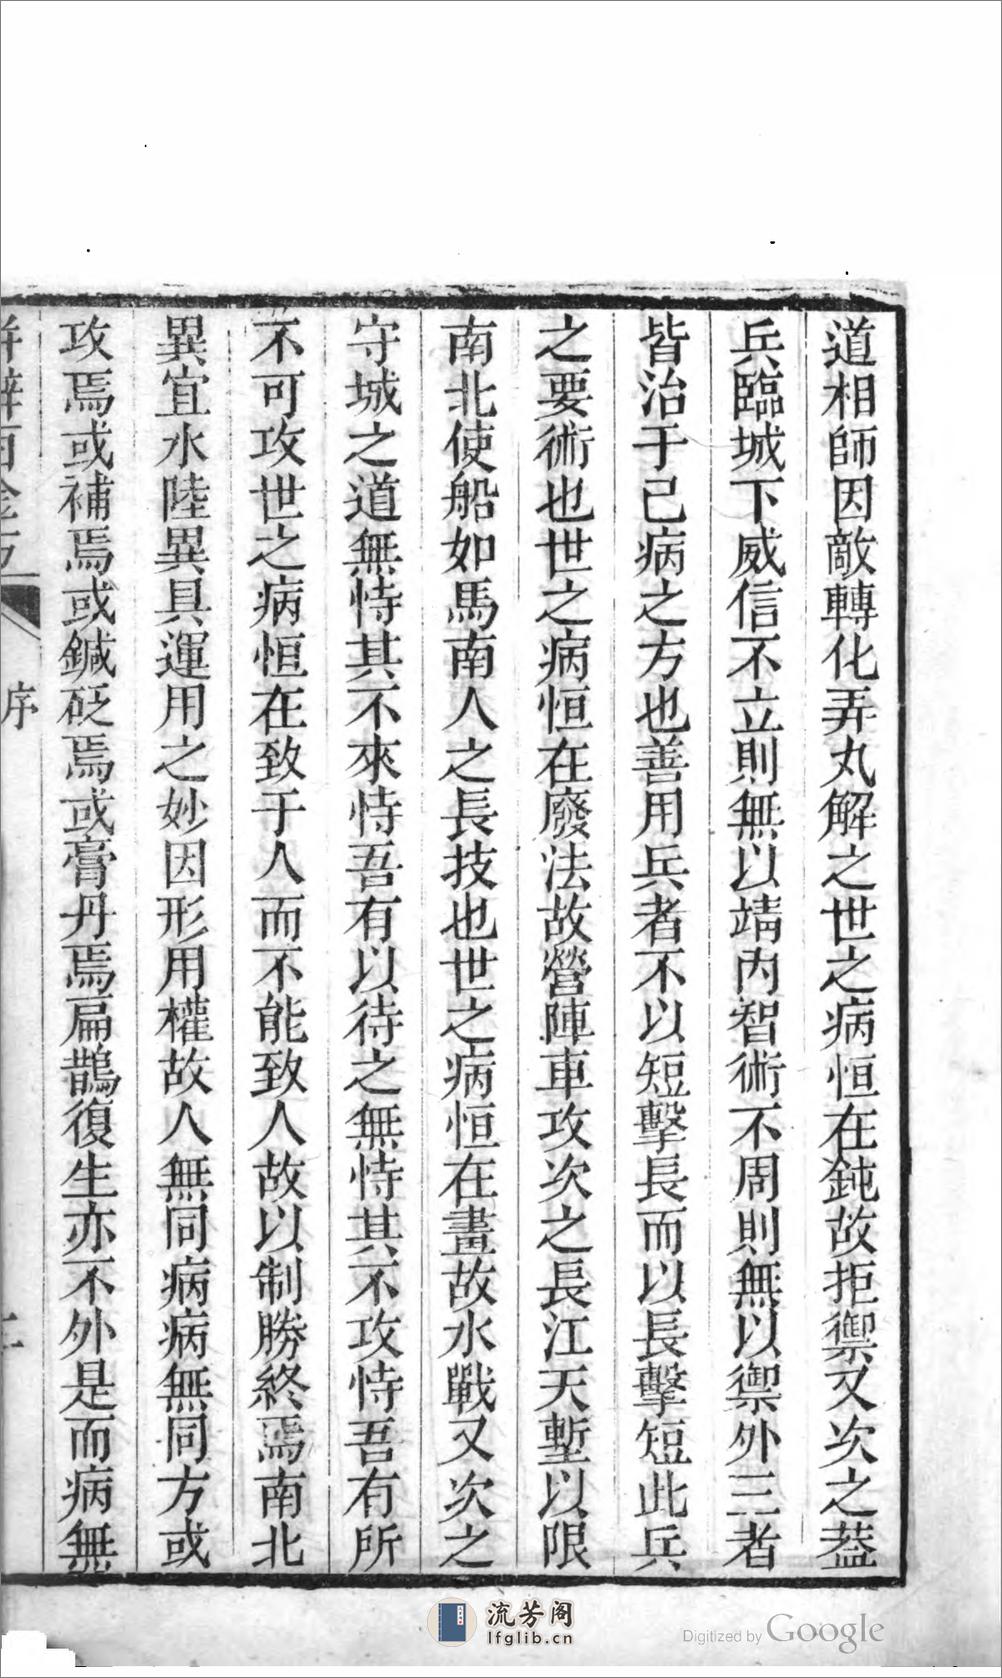 道相師因敵轉化弄丸解之世之病恒在鈍故拒禦又次之葢
兵臨城下威信不立則無以靖內智術不周則無以禦外三者
皆治于己病之方也善用兵者不以短擊長而以長擊短此兵
之要術也世之病恒在廢法故營陣車攻次之長江天塹以限
南北使船如馬南人之長技也世之病恒在畫故水戰又次之
守城之道無恃其不來恃吾有以待之無恃其不攻恃吾有所
不可攻世之病恒在致于人而不能致人故以制勝終焉南北
異宜水陸異具運用之妙因形用權故人無同病病無同方或
攻焉或補焉或鍼砭焉或膏丹焉扁鵲復生亦不外是而病無
洴澼百金方
序
流芳阁
lfglib.cn
Digitized by Google